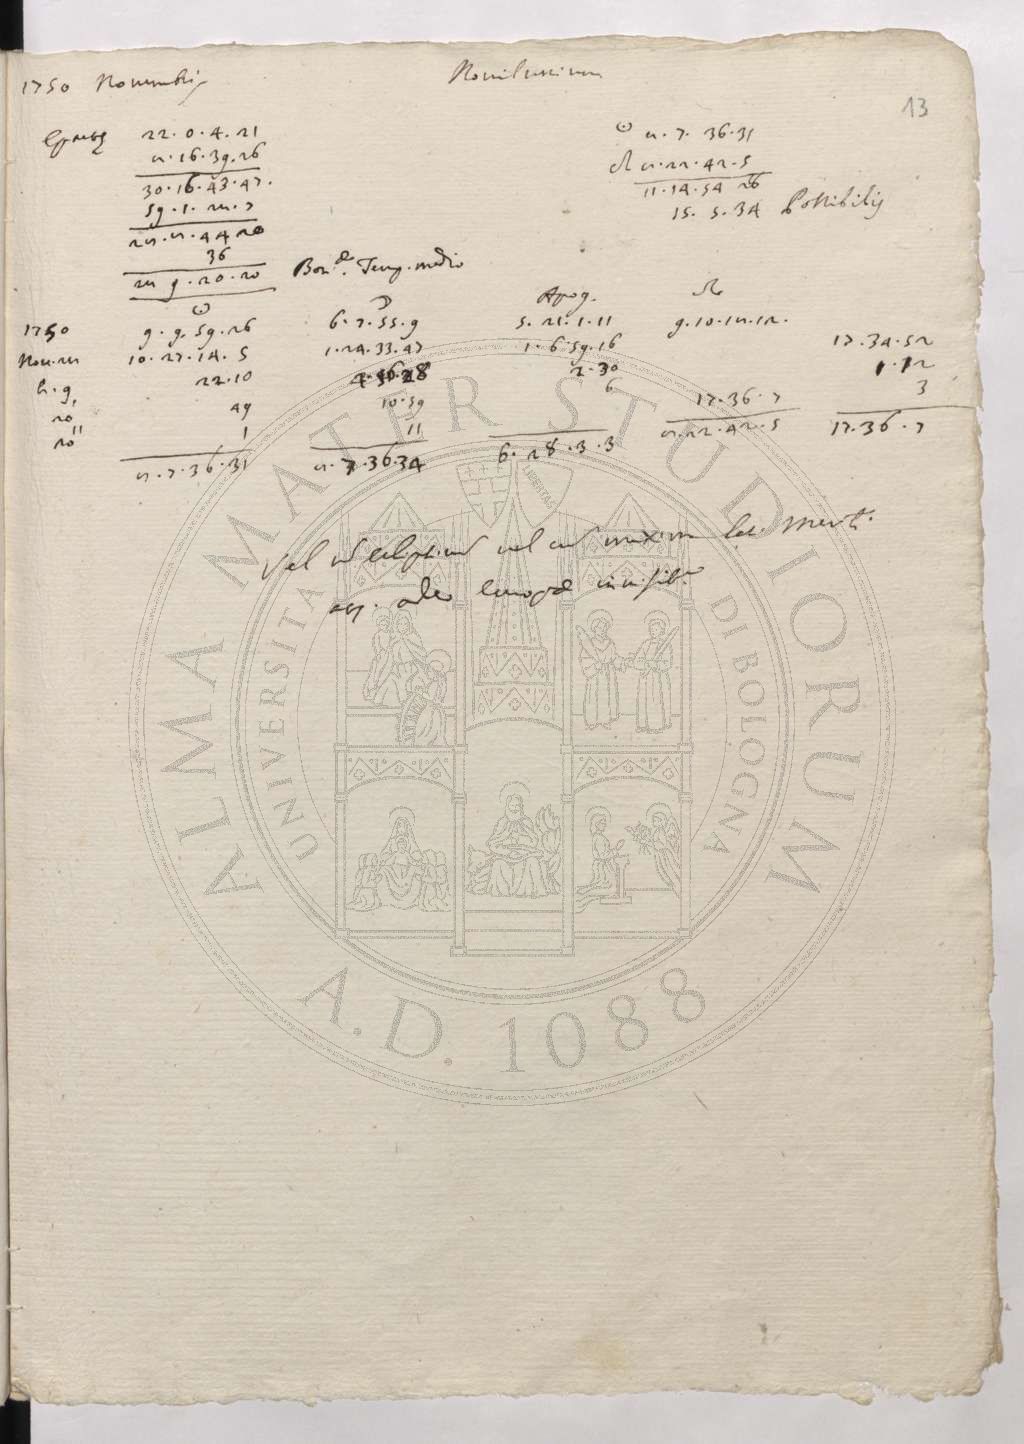 1750 Novembris Novilunium
13
Epactae 22.0.4.21
8.16.39.26
30.16.43.47.
59.1.28.7
28.8.44 20
36
28 9.20.20 Bon. Temp. medio
☉ 8.7.36.31
☊ 8.22.42.5
11.14.54 26
15.5.34 Possibilis
☉ ☽ Apog. ☊
1750 9.9.59.26 6.7.55.9 5.21.1.11 9.10.18.12. 17.34.52
Nov. 28 10.27.14.5 1.24.33.47 1.6.59.16 1.12
h. 9 22.10 4.56.28 2.30 3
20' 49 10.59 6 17.36.7
20'' 1 11
8.7.36.31 8.7.36.34 6.28.3.3 8.22.42.5 17.36.7
Vel ad eclipticam vel ad maxim lat. Merid.
adeo Europae invisib.
ALMA MATER STUDIORUM
UNIVERSITA DI BOLOGNA
LIBERTAS
A.D. 1088